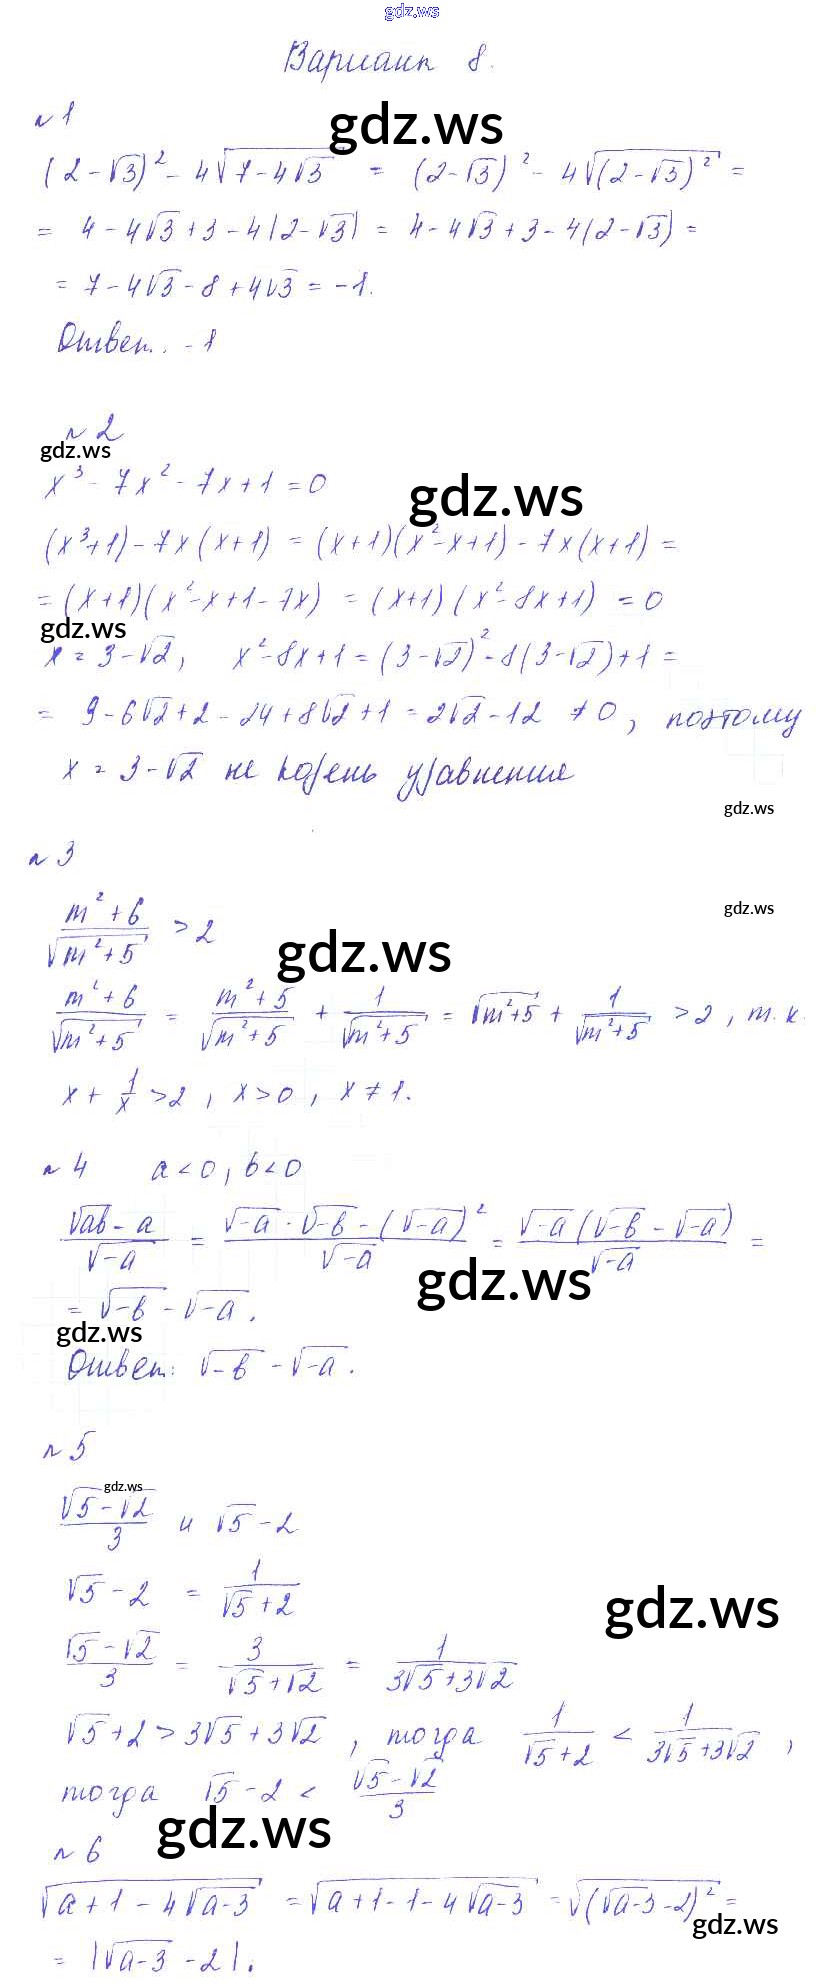 gdz.ws
Вариант 8.
№1
gdz.ws
(2-√3)² - 4√(7-4√3) = (2-√3)² - 4√((2-√3)²) =
= 4-4√3+3-4|2-√3| = 4-4√3+3-4(2-√3) =
= 7-4√3-8+4√3 = -1.
Ответ: -1
№2
gdz.ws
x³-7x²-7x+1=0
gdz.ws
(x³+1)-7x(x+1) = (x+1)(x²-x+1)-7x(x+1) =
= (x+1)(x²-x+1-7x) = (x+1)(x²-8x+1) = 0
gdz.ws
x = 3-√2, x²-8x+1 = (3-√2)²-8(3-√2)+1 =
= 9-6√2+2-24+8√2+1 = 2√2-12 ≠ 0, поэтому
x = 3-√2 не корень уравнения
gdz.ws
№3
gdz.ws
(m²+6)/√(m²+5) > 2
gdz.ws
(m²+6)/√(m²+5) = (m²+5)/√(m²+5) + 1/√(m²+5) = √(m²+5) + 1/√(m²+5) > 2, т.к.
x + 1/x > 2, x > 0, x ≠ 1.
№4 a<0, b<0
(√ab - a)/√-a = (√-a · √-b - (√-a)²)/√-a = (√-a(√-b - √-a))/√-a =
gdz.ws
= √-b - √-a.
gdz.ws
Ответ: √-b - √-a.
№5
gdz.ws
(√5-√2)/3 и √5-2
√5-2 = 1/(√5+2)
gdz.ws
(√5-√2)/3 = 3/(√5+√2) = 1/(3√5+3√2)
√5+2 > 3√5+3√2, тогда 1/(√5+2) < 1/(3√5+3√2),
тогда √5-2 < (√5-√2)/3
gdz.ws
№6
√(a+1-4√(a-3)) = √(a+1-1-4√(a-3)) = √((√(a-3)-2)²) =
gdz.ws
= |√(a-3)-2|.